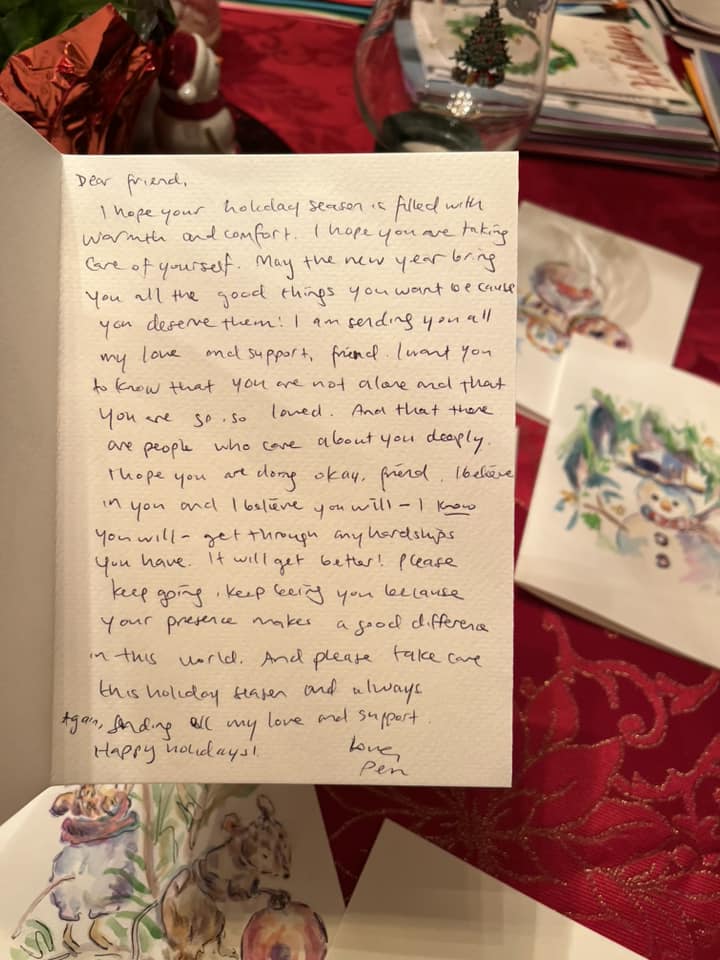 Holidays
Dear friend,
I hope your holiday season is filled with
warmth and comfort. I hope you are taking
care of yourself. May the new year bring
you all the good things you want because
you deserve them! I am sending you all
my love and support, friend. I want you
to know that you are not alone and that
you are so, so loved. And that there
are people who care about you deeply.
I hope you are doing okay, friend. I believe
in you and I believe you will – I know
you will – get through any hardships
you have. It will get better! Please
keep going, keep being you because
your presence makes a good difference
in this world. And please take care
this holiday season and always
Again, sending all my love and support.
Happy holidays!
Love,
Pen